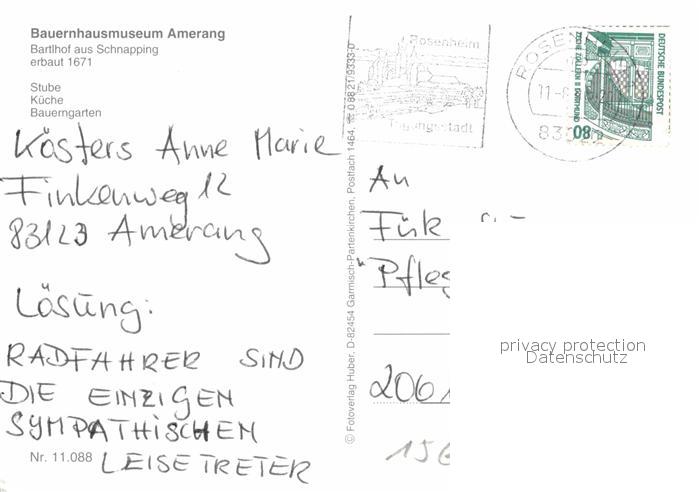 Bauernhausmuseum Amerang
Bartlhof aus Schnapping
erbaut 1671
Stube
Küche
Bauerngarten
Kösters Anne Marie
Finkenweg 12
83123 Amerang
Lösung:
RADFAHRER SIND
DIE EINZIGEN
SYMPATHISCHEN
LEISETRETER
Nr. 11.088
© Fotoverlag Huber, D-82454 Garmisch-Partenkirchen, Postfach 1464, Tel. 0 88 21/9333-0
Rosenheim
Tagungsstadt
DEUTSCHE BUNDESPOST
ZECHE ZOLLERN II DORTMUND
80
An
Fük
"Pfleg
2061
156
privacy protection
Datenschutz